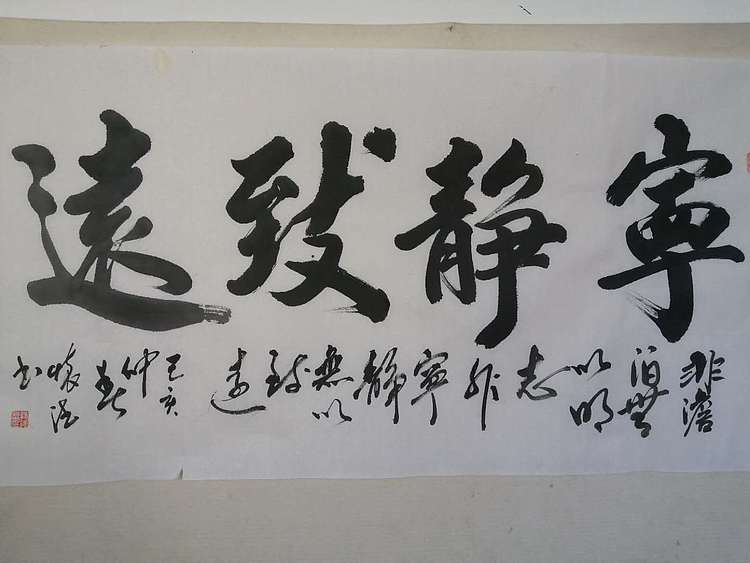 寧靜致遠
非澹泊無以明志非寧靜無以致遠
己亥仲春懷
書